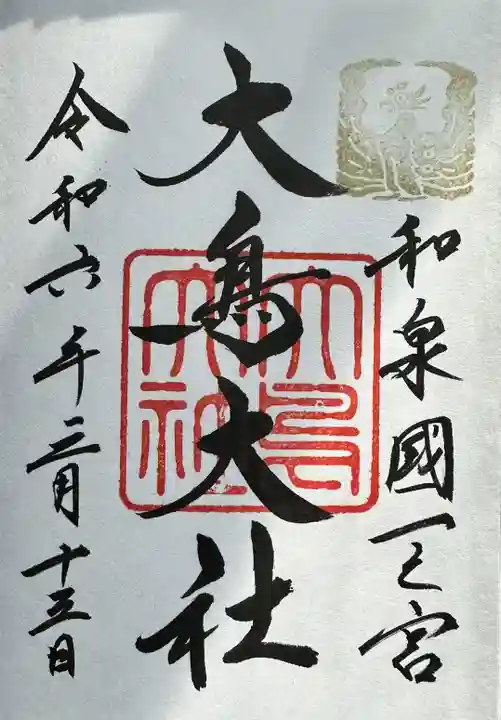 和泉國一之宮
大鳥大社
大鳥
大社
令和六年三月十三日